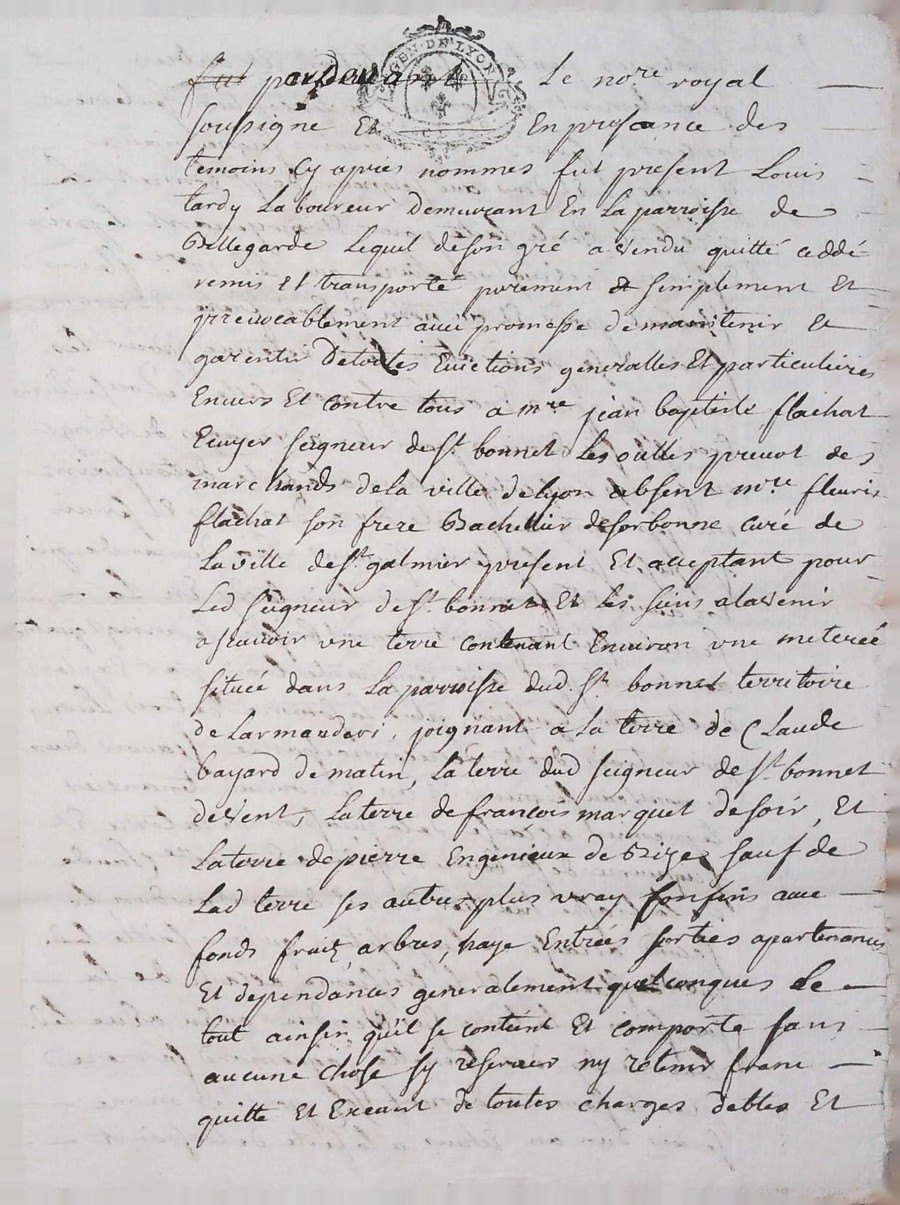 GEN · DE LYON
fut pardevant Le nore royal
soussigne Et En presance des
temoins cy apres nommes fut present Louis
tardy Laboureur Demurant En La parroisse de
Bellegarde Lequel de son gré a vendu quitté ceddé
remis et transporté purement & simplement Et
irrevocablement avec promesse de maintenir Et
garentir De toutes Evictions generalles Et particulieres
Envers Et contre tous a mre jean baptiste flachat
Ecuyer seigneur de st bonnet Les oulles prevot des
marchands de la ville de lyon absent mre fleurie
flachat son frere Bachellier de sorbonne curé de
La ville de st galmier present Et acceptant pour
Led seigneur de st bonnet Et les siens alavenir
ascavoir une terre contenant Environ une meterée
située dans La parroisse dud. st bonnet territoire
de Larmanderi, joignant a La terre de Claude
bayard de matin, La terre dud seigneur de st bonnet
de vent, La terre de francois marquet de soir, Et
La terre de pierre Engenieux de Bize sauf de
Lad terre ses autres plus vray confins avec
fonds fruit, arbres, haye Entrées sorties apartenances
Et dependances generalement quelconques Le
tout ainsin qu'il se contient Et comporte sans
aucune chose sy reserver ny retenir franc
quitte Et Exeant de toutes charges debtes Et